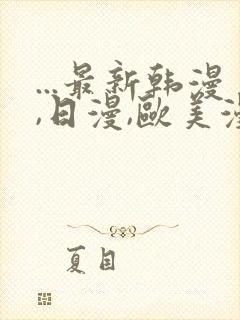 ...最新韩漫
,日漫,歐美漫
夏目